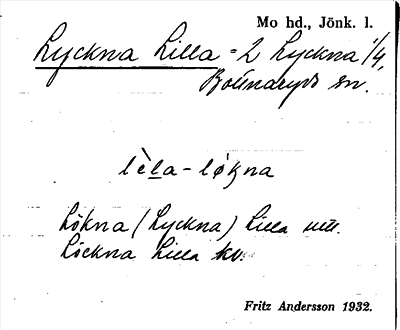 Mo hd., Jönk. l.
Lyckna Lilla = 2 Lyckna 1/4,
Bottnaryds sn.
lè̀la - løkna
Lökna (Lyckna) Lilla
Löckna Lilla kv.
Fritz Andersson 1932.